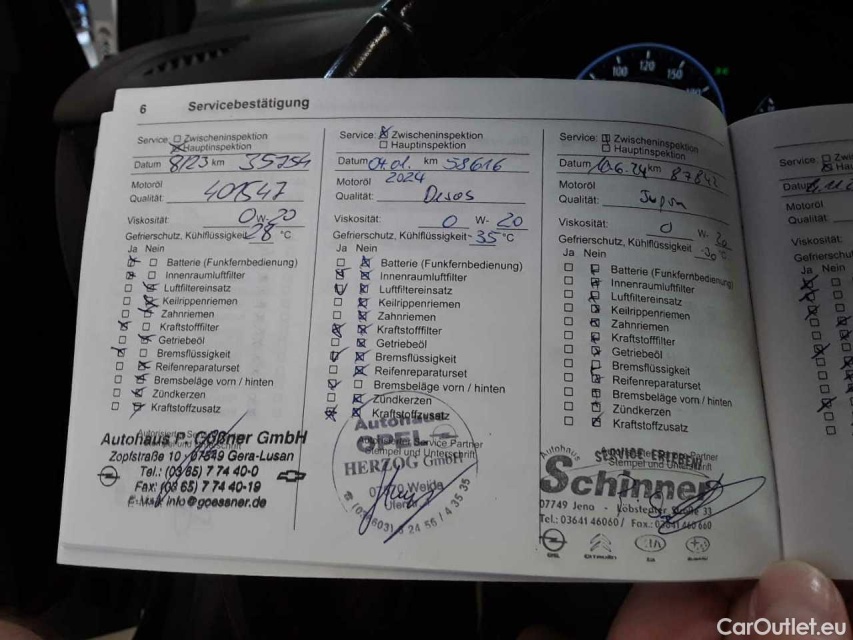 6 Servicebestätigung
Service: Zwischeninspektion
Hauptinspektion
Datum 8/23 km 35754
Motoröl
Qualität: 401547
Viskosität: 0 W- 20
Gefrierschutz, Kühlflüssigkeit 28 °C
Ja Nein
Batterie (Funkfernbedienung)
Innenraumluftfilter
Luftfiltereinsatz
Keilrippenriemen
Zahnriemen
Kraftstofffilter
Getriebeöl
Bremsflüssigkeit
Reifenreparaturset
Bremsbeläge vorn / hinten
Zündkerzen
Kraftstoffzusatz
Autohaus P. Gößner GmbH
Zopfstraße 10 07549 Gera-Lusan
Tel.: (03 65) 7 74 40-0
Fax: (03 65) 7 74 40-19
E-Mail: info@goessner.de
Service: Zwischeninspektion
Hauptinspektion
Datum 04.01. km 58616
2024
Motoröl
Qualität:
Viskosität: 0 W- 20
Gefrierschutz, Kühlflüssigkeit -35 °C
Ja Nein
Batterie (Funkfernbedienung)
Innenraumluftfilter
Luftfiltereinsatz
Keilrippenriemen
Zahnriemen
Kraftstofffilter
Getriebeöl
Bremsflüssigkeit
Reifenreparaturset
Bremsbeläge vorn / hinten
Zündkerzen
Kraftstoffzusatz
Autohaus
OPEL
Autorisierter Service Partner
Stempel und Unterschrift
HERZOG GmbH
Weida
Service: Zwischeninspektion
Hauptinspektion
Datum 10.6.24 km 87842
Motoröl
Qualität:
Viskosität: 0 W- 20
Gefrierschutz, Kühlflüssigkeit -30 °C
Ja Nein
Batterie (Funkfernbedienung)
Innenraumluftfilter
Luftfiltereinsatz
Keilrippenriemen
Zahnriemen
Kraftstofffilter
Getriebeöl
Bremsflüssigkeit
Reifenreparaturset
Bremsbeläge vorn / hinten
Zündkerzen
Kraftstoffzusatz
Autohaus
SERVICE ERLEBEN
Stempel und Unterschrift
Schinner
07749 Jena - Löbstedter Straße 33
Tel.: 03641 46060 / Fax.: 03641 460 660
OPEL CITROËN KIA
Service:
Motoröl
Qualität:
Viskosität:
Ja Nein
100 120 150
CarOutlet.eu